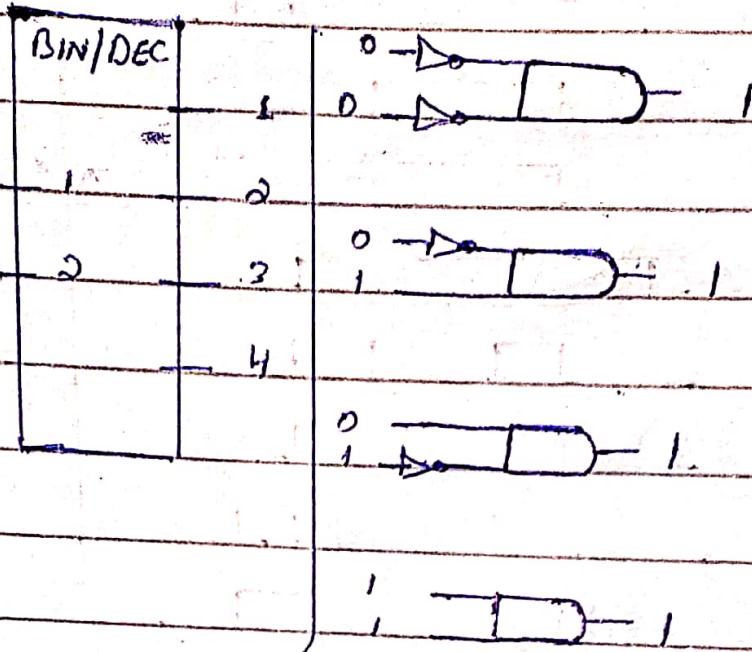 BIN/DEC
1
1
2
2
3
4
0
0 1
0
1 1
0
1 1.
1
1 1